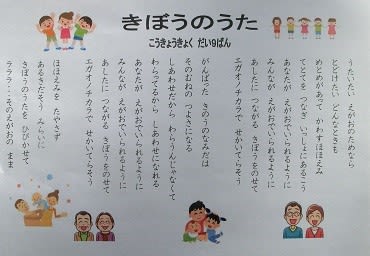 きぼうのうた
こうきょうきょく だい9ばん
うたいたい えがおのためなら
とどけたい どんなときも
めとめがあって かわすほほえみ
てとてを つなぎ いっしょにあるこう
あなたが えがおでいられるように
みんなが えがおでいられるように
あしたに つながる きぼうをのせて
エガオノチカラで せかいてらそう
がんばった きのうのなみだは
そのむねの つよさになる
しあわせだから わらうんじゃなくて
わらってるから しあわせになれる
あなたが えがおでいられるように
みんなが えがおでいられるように
あしたに つながる きぼうをのせて
エガオノチカラで せかいてらそう
ほほえみを たやさず
あるきだそう みらいに
きぼうのうたを ひびかせて
ラララ・・そのえがおの まま